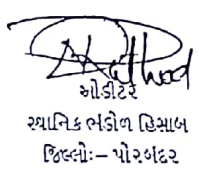 ઓડીટર
સ્થાનિક ભંડોળ હિસાબ
જિલ્લોઃ– પોરબંદર